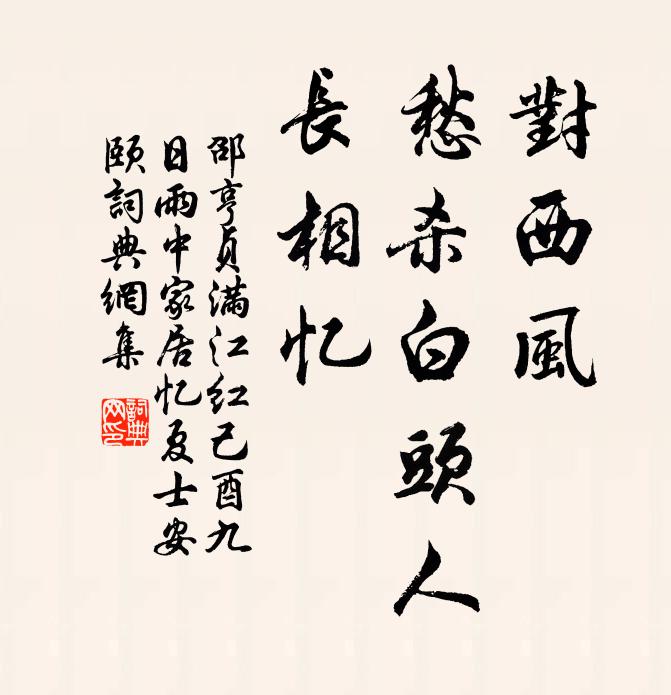 對西風
愁杀白頭人
長相忆
邵亨貞滿江红己酉九
日雨中家居忆夏士安
頤詞典網集
詞典
网印